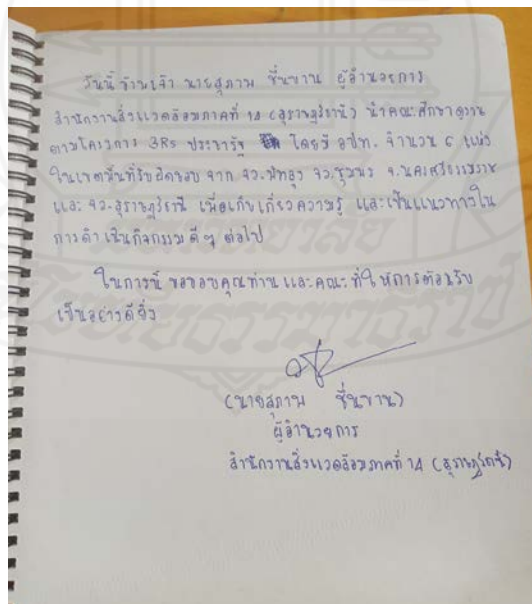 วันนี้ ข้าพเจ้า นายสุภาพ ชื่นบาน ผู้อำนวยการ
สำนักงานสิ่งแวดล้อมภาคที่ 14 (สุราษฎร์ธานี) นำคณะศึกษาดูงาน
ตามโครงการ 3Rs ประชารัฐ โดยมี อปท. จำนวน 6 แห่ง
ในเขตพื้นที่รับผิดชอบ จาก จว.พัทลุง จว.ชุมพร จ.นครศรีธรรมราช
และ จว.สุราษฎร์ธานี เพื่อเก็บเกี่ยวความรู้ และเป็นแนวทางใน
การดำเนินกิจกรรมดีๆ ต่อไป
ในการนี้ ขอขอบคุณท่านและคณะ ที่ให้การต้อนรับ
เป็นอย่างดียิ่ง
(นายสุภาพ ชื่นบาน)
ผู้อำนวยการ
สำนักงานสิ่งแวดล้อมภาคที่ 14 (สุราษฎร์ธานี)